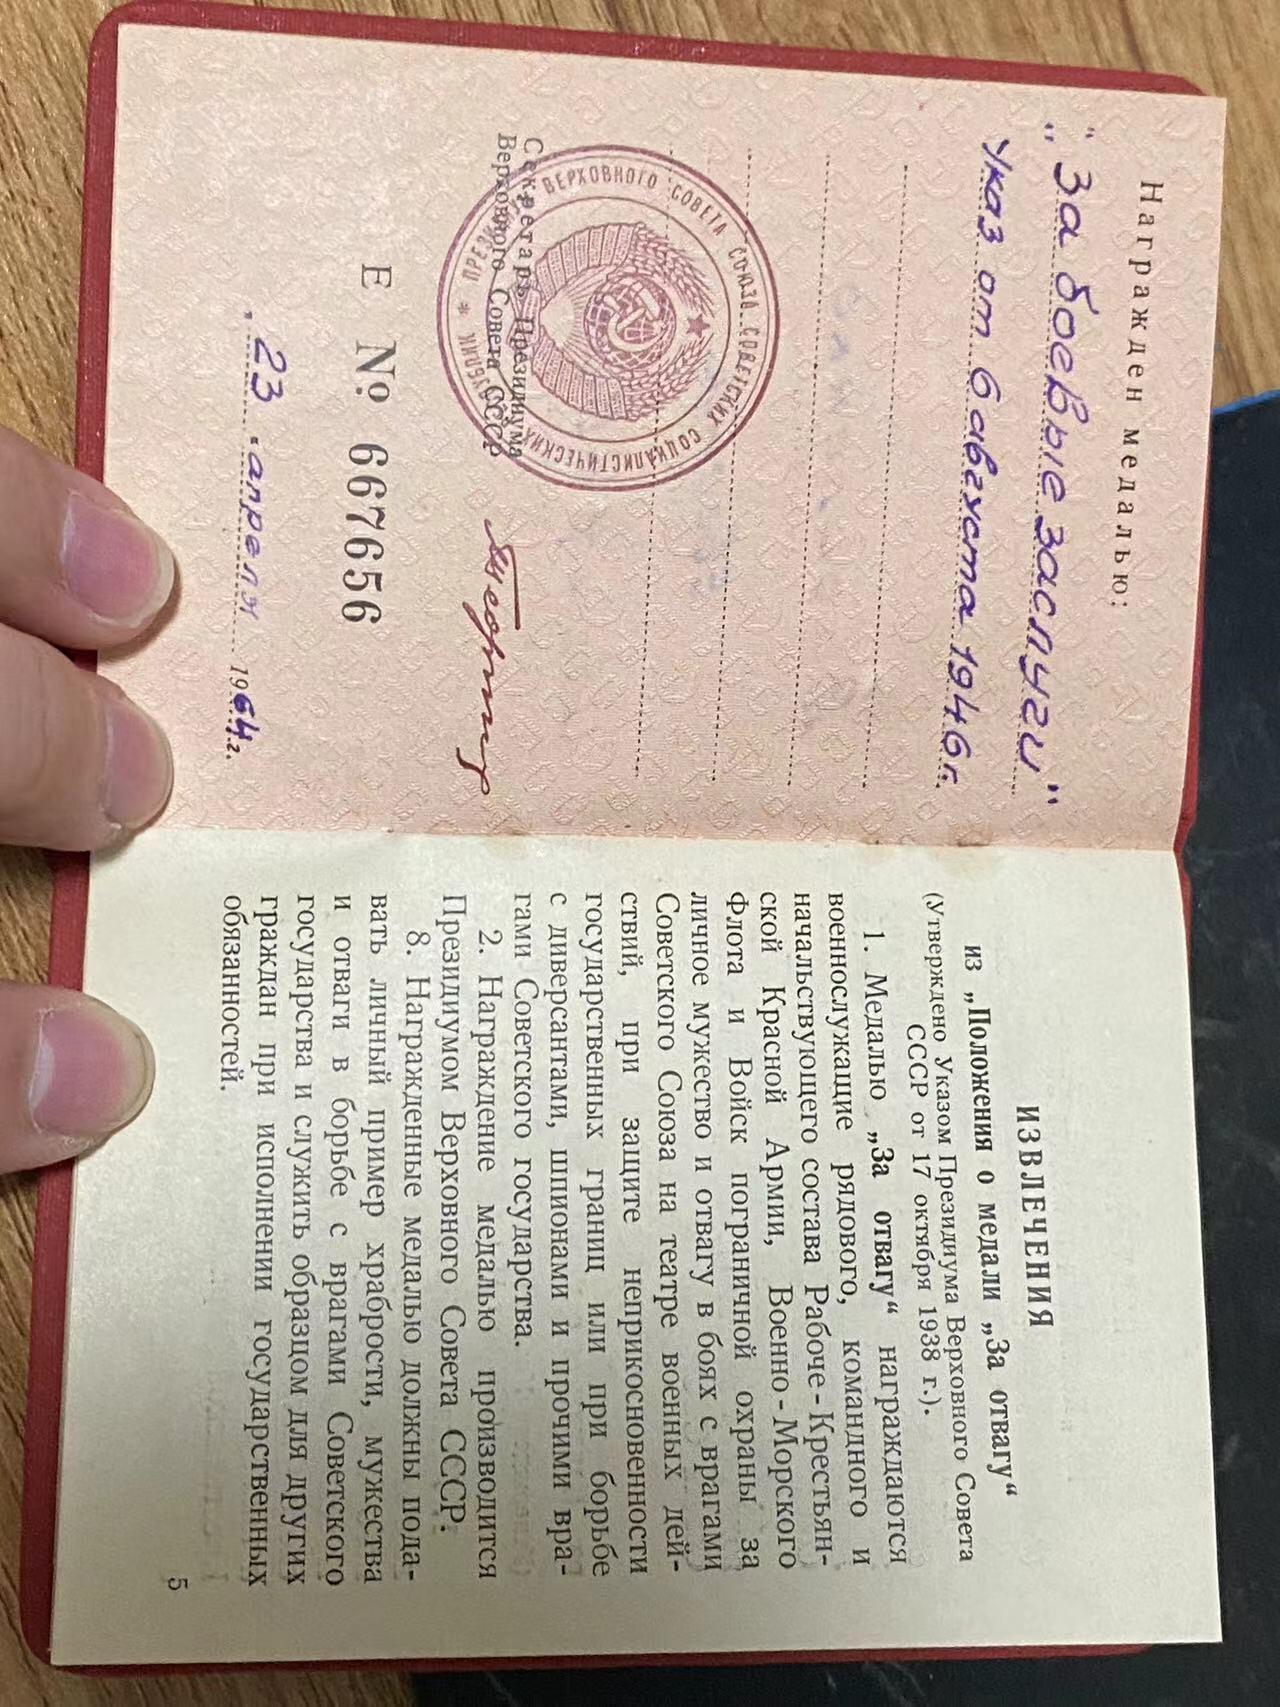 Награжден медалью:
"За боевые заслуги"
Указ от 6 августа 1946 г.
ПРЕЗИДИУМ ВЕРХОВНОГО СОВЕТА СОЮЗА СОВЕТСКИХ СОЦИАЛИСТИЧЕСКИХ РЕСПУБЛИК *
Секретарь Президиума
Верховного Совета СССР
Е № 667656
„23" апреля 1964 г.
ИЗВЛЕЧЕНИЯ
из „Положения о медали „За отвагу“
(Утверждено Указом Президиума Верховного Совета
СССР от 17 октября 1938 г.).
1. Медалью „За отвагу“ награждаются
военнослужащие рядового, командного и
начальствующего состава Рабоче-Крестьян-
ской Красной Армии, Военно-Морского
Флота и Войск пограничной охраны за
личное мужество и отвагу в боях с врагами
Советского Союза на театре военных дей-
ствий, при защите неприкосновенности
государственных границ или при борьбе
с диверсантами, шпионами и прочими вра-
гами Советского государства.
2. Награждение медалью производится
Президиумом Верховного Совета СССР.
8. Награжденные медалью должны пода-
вать личный пример храбрости, мужества
и отваги в борьбе с врагами Советского
государства и служить образцом для других
граждан при исполнении государственных
обязанностей.
5